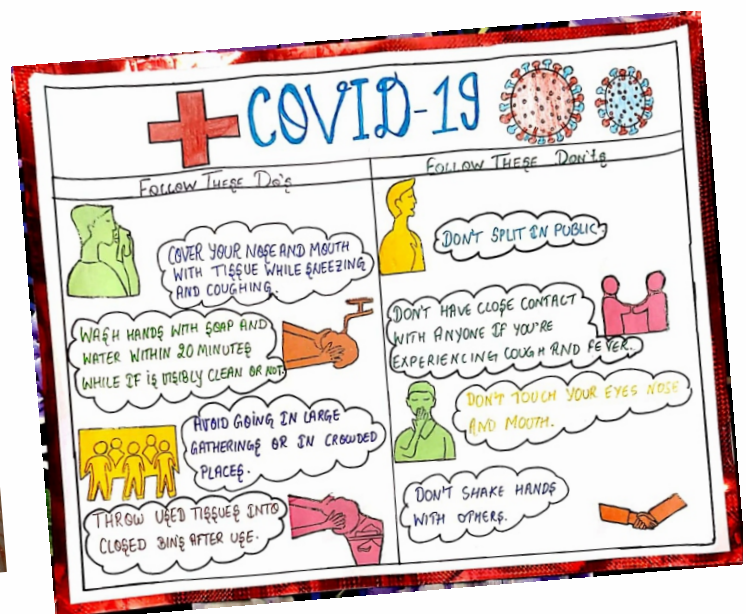 COVID-19
FOLLOW THESE DO'S
COVER YOUR NOSE AND MOUTH
WITH TISSUE WHILE SNEEZING
AND COUGHING.
WASH HANDS WITH SOAP AND
WATER WITHIN 20 MINUTES
WHILE IF IS VISIBLY CLEAN OR NOT.
AVOID GOING IN LARGE
GATHERINGS OR IN CROWDED
PLACES.
THROW USED TISSUES INTO
CLOSED BINS AFTER USE.
FOLLOW THESE DON'TS
DON'T SPLIT IN PUBLIC.
DON'T HAVE CLOSE CONTACT
WITH ANYONE IF YOU'RE
EXPERIENCING COUGH AND FEVER.
DON'T TOUCH YOUR EYES NOSE
AND MOUTH.
DON'T SHAKE HANDS
WITH OTHERS.